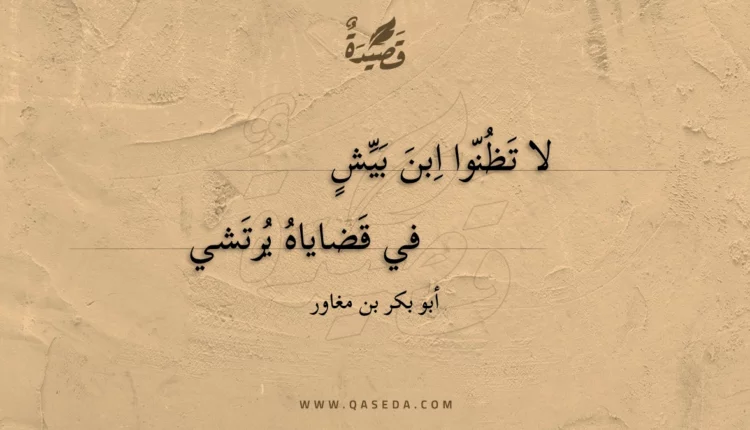 قَصِيْدَةٌ
لا تَظُنّوا اِبنَ بَيِّشٍ
في قَضاياهُ يُرتَشي
أبو بكر بن مغاور
WWW.QASEDA.COM